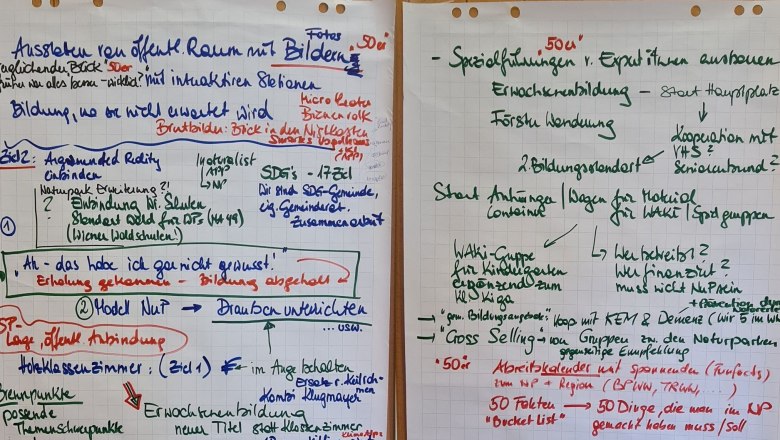 Ausstaten von öffentl. Raum mit Bildern
Fotos
"50er"
"50er"
mit interaktiven Stationen
Bildung, wo sie nicht erwartet wird
Micro Theater
Bienenvolk
Brutbilder: Blick in den Nistkasten
(APP)
Ziel 2: Augmented Reality
einbinden
inaturalist
APP
→ NP
SDG's - 17 Ziel
Wir sind SDG-Gemeinde,
eig. Gemeinderat.
Zusammenarbeit
Naturpark Erweiterung?!
? Einbindung Wr. Schulen
Standort Wald für
(Wiener Waldschulen!)
①
"Ah - das habe ich gar nicht gewusst!"
Erholung gekommen - Bildung abgeholt
② Modell NuP → Draußen unterrichten
... usw.
Lage, öffentl. Anbindung
Holzklassenzimmer: (Ziel 1)
im Auge behalten
Kombi Klugmayer
Brennpunkte
Erwachsenenbildung
Themenschwerpunkte
neuer Titel statt Klassenzimmer
"50er"
- Spezialführungen v. ExpertInnen ausbauen
Erwachsenenbildung - Start Hauptplatz
Förster Wanderung
Kooperation mit
VHS?
Seniorenbund?
2. Bildungsstandort
Start Anhänger / Wagen für Material
Container
für WAKI / Spielgruppen
WAKi-Gruppe
für Kindergarten
ergänzend zum
Kiga
Wer betreibt?
Wer finanziert?
muss nicht NuP sein
→ "gem. Bildungsangebote": Koop mit KEM & Demenz (Wir 5 im
→ "Cross Selling" → von Gruppen zw. den Naturparken
gegenseitige Empfehlung
"50er"
Abreißkalender mit spannenden (Funfacts)
zum NP + Region (BPWW, TRWN, ...)
50 Fakten → 50 Dinge, die man im NP
"Bucket List"
gemacht haben muss / soll